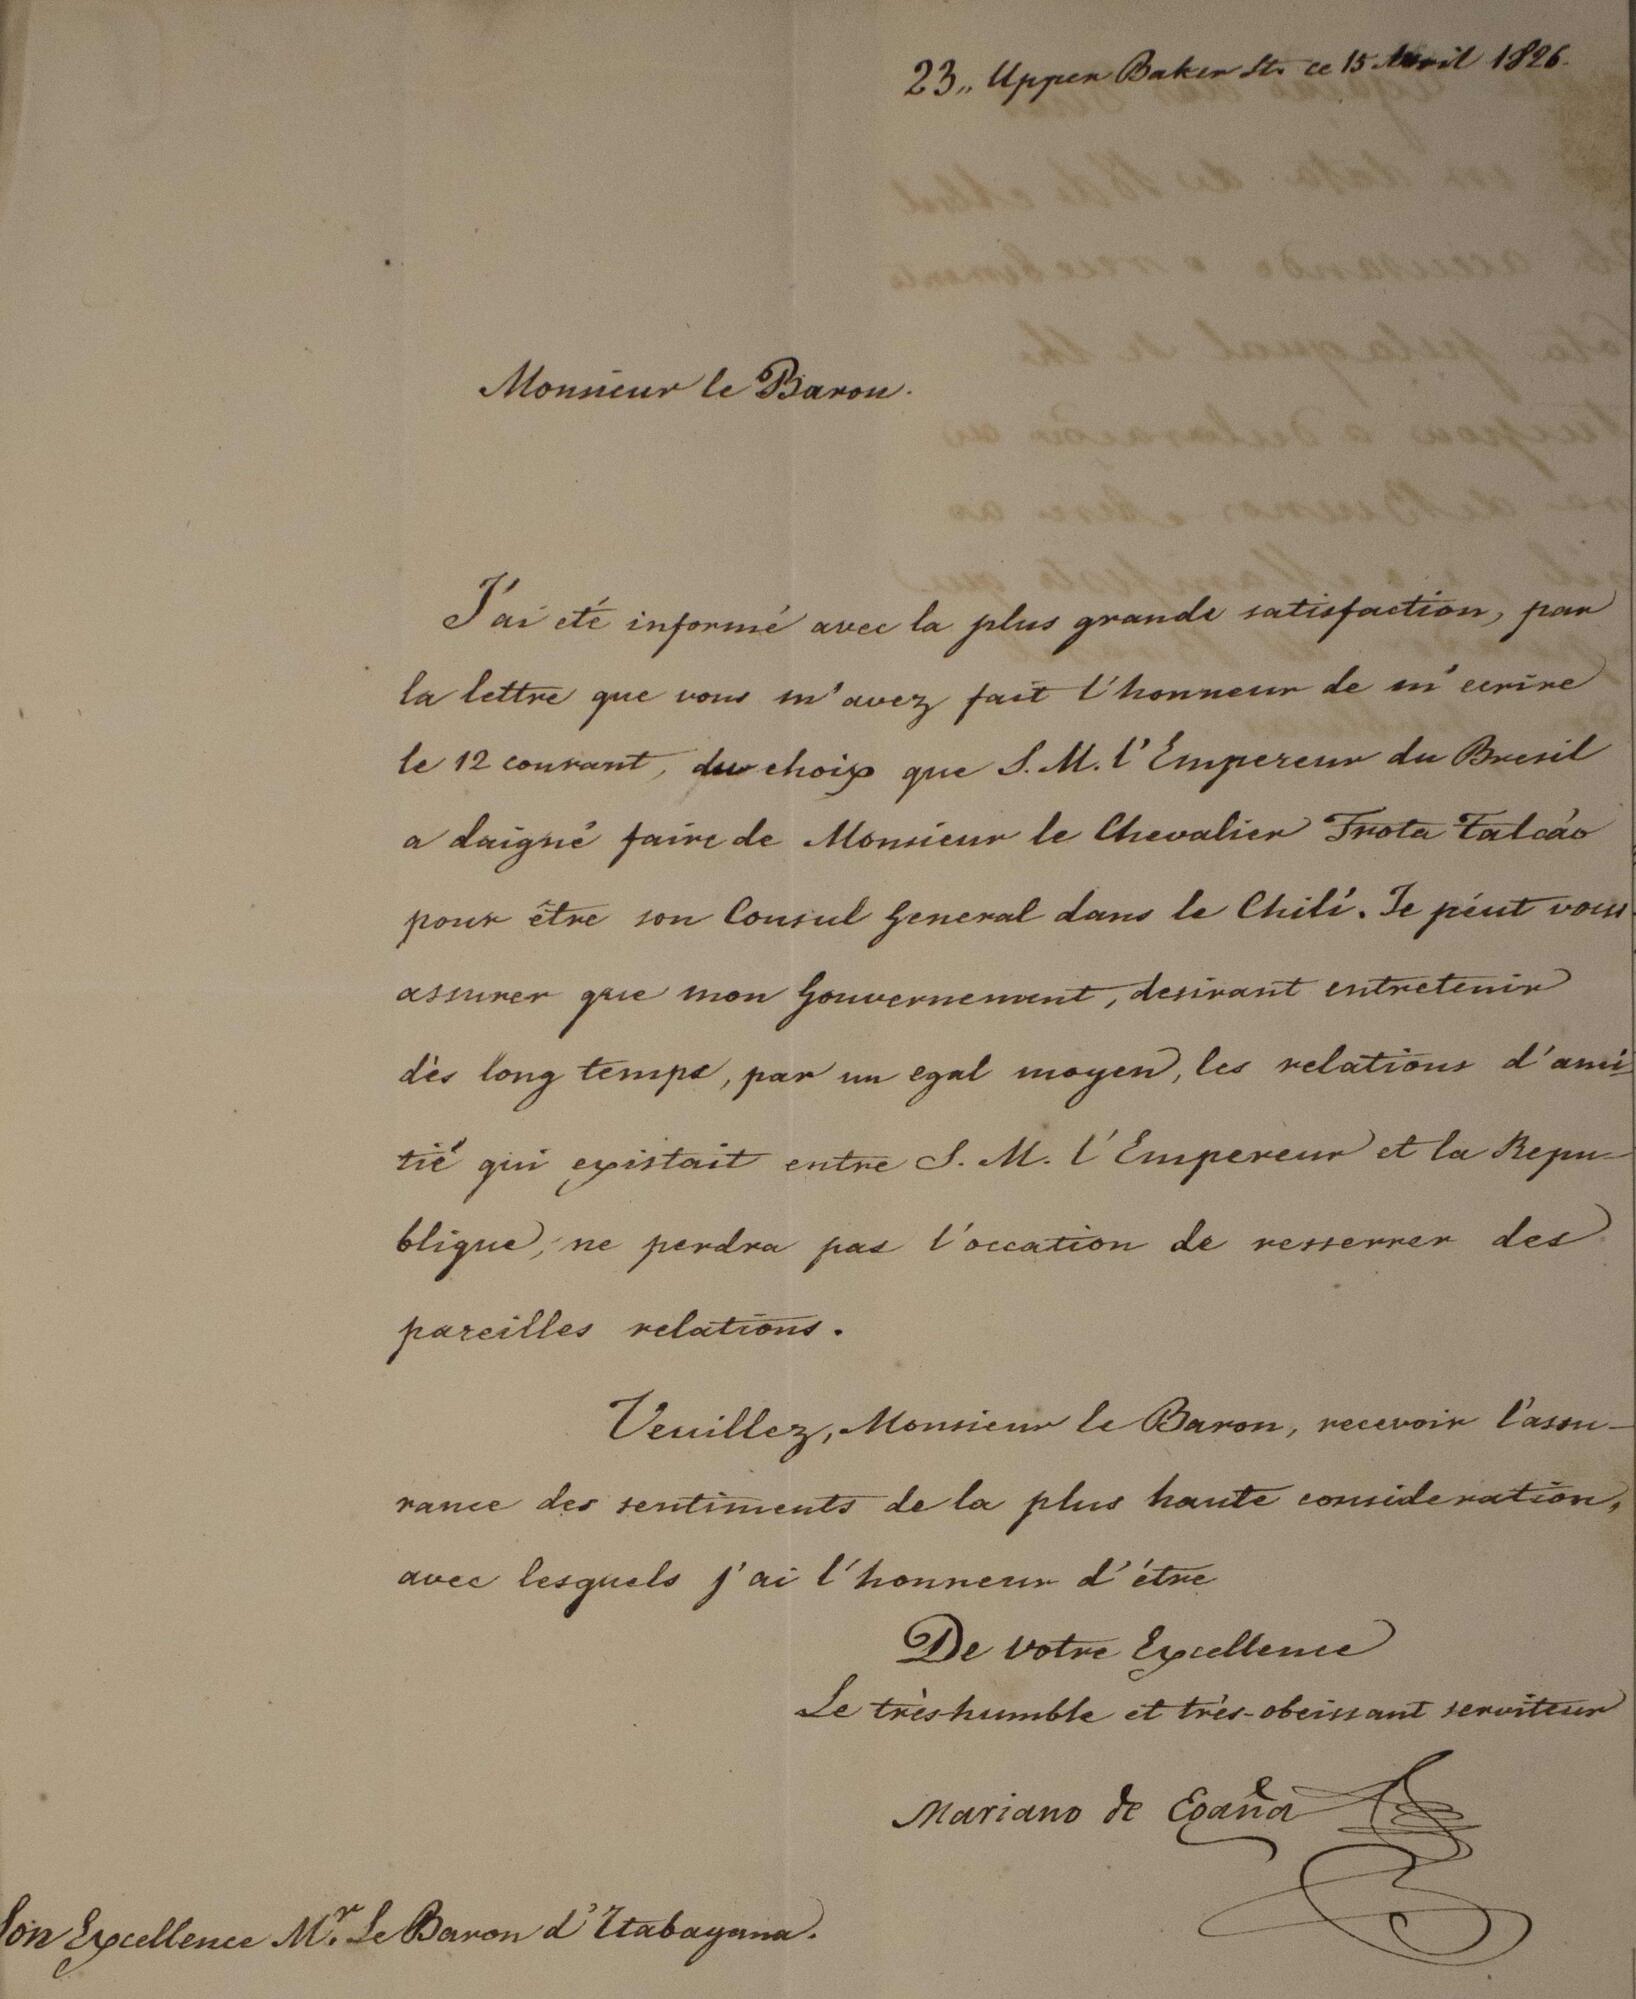 23,, Upper Baker St. ce 15 Avril 1826.
Monsieur le Baron.
J'ai eté informé avec la plus grande satisfaction, par
la lettre que vous m'avez fait l'honneur de m'ecrire
le 12 courant, du choix que S. M. l'Empereur du Bresil
a daigné faire de Monsieur le Chevalier Frota Falcáo
pour être son Consul General dans le Chilí. Je péut vous
assurer que mon Gouvernement, desirant entretenir
dès long temps, par un egal moyen, les relations d'ami-
tié qui existait entre S. M. l'Empereur et la Repu-
blique, ne perdra pas l'occation de resserrer des
pareilles relations.
Veuillez, Monsieur le Baron, recevoir l'assu-
rance des sentiments de la plus haute consideration,
avec lesquels j'ai l'honneur d'étre
De Votre Excellence
Le très humble et très-obeissant serviteur
Mariano de Egaña
Son Excellence Mr. Le Baron d'Itabayana.